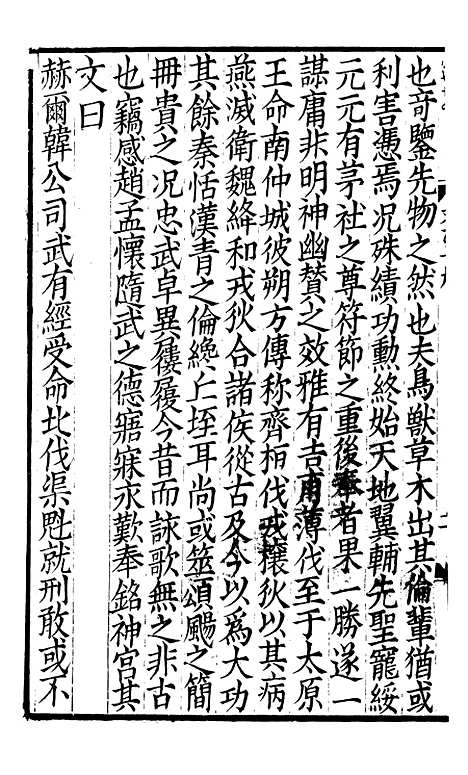 也奇鑒先物之然也夫鳥獸草木出其倫輩猶或
利害憑焉况殊績功勳終始天地翼輔先聖寵綏
元元有茅社之尊符節之重後奉者果一勝遂一
謀庸非明神幽贊之效雅有吉甫薄伐至于太原
王命南仲城彼朔方傳称齊桓伐戎攘狄以其病
燕滅衛魏絳和戎狄合諸侯從古及今以爲大功
其餘秦恬漢青之倫纔上埊耳尚或筮頌颺之簡
冊貴之况忠武卓異屨履今昔而詠歌無之非古
也竊感趙孟懷隨武之德寤寐永歎奉銘神宫其
文曰
赫爾韓公司武有經受命北伐渠魁就刑敢或不